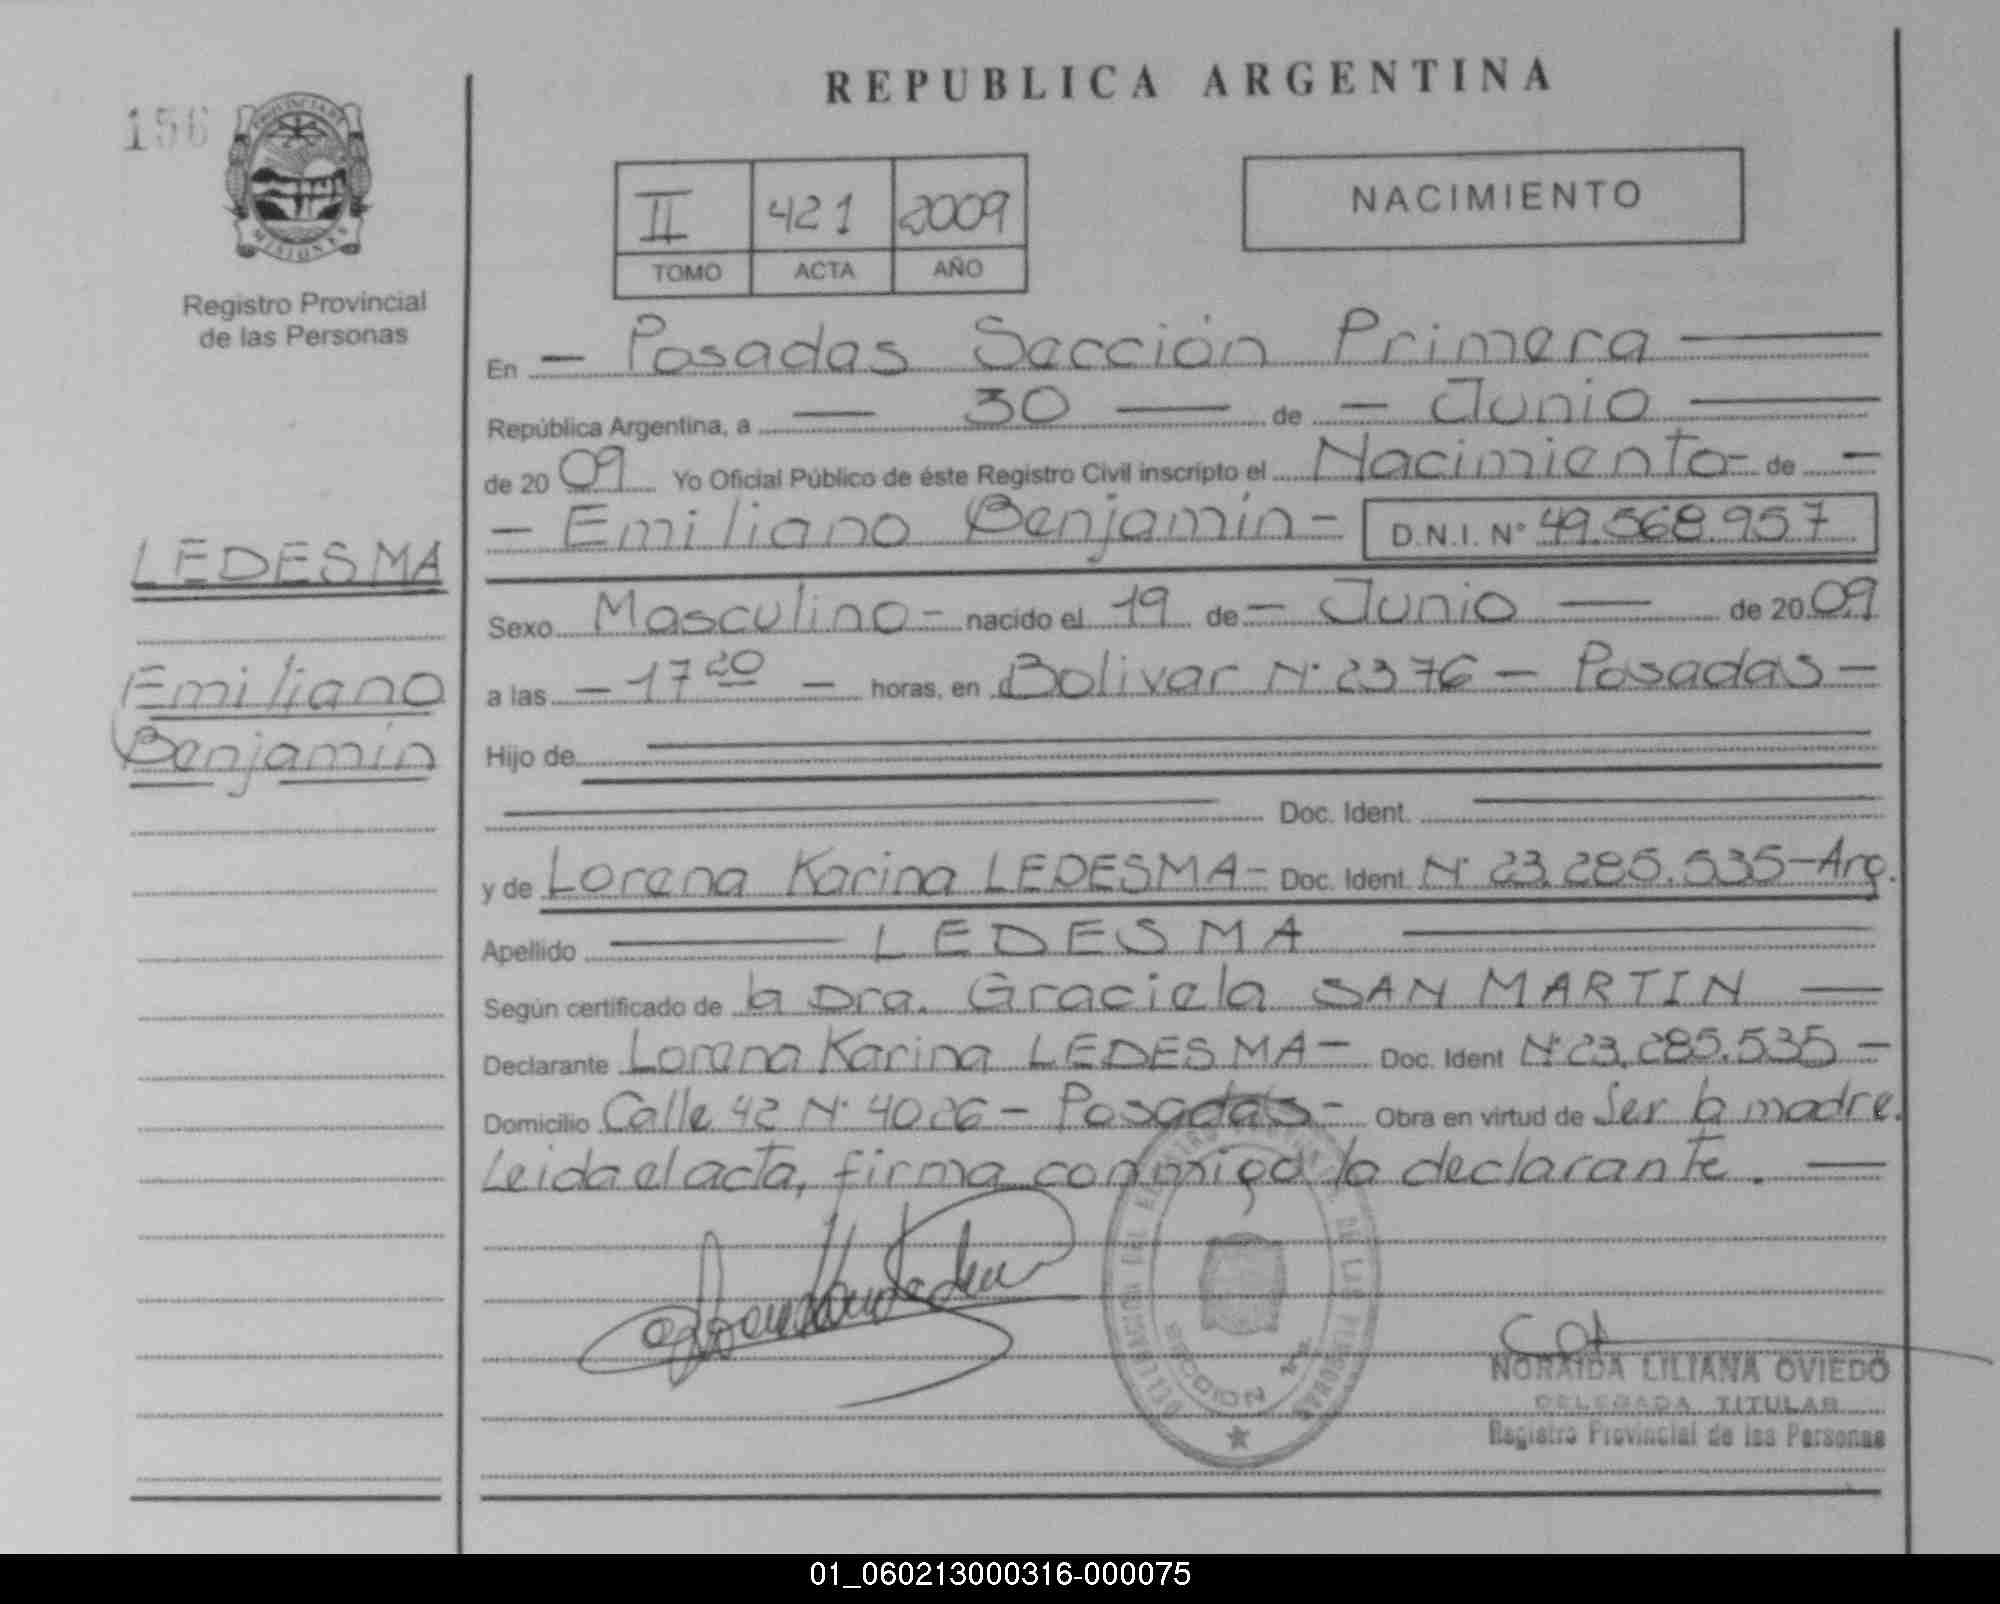 REPUBLICA ARGENTINA
156
PROVINCIA DE
MISIONES
Registro Provincial
de las Personas
II 421 2009
TOMO ACTA AÑO
NACIMIENTO
En — Posadas Sección Primera —
República Argentina, a — 30 — de — Junio —
de 2009 Yo Oficial Público de éste Registro Civil inscripto el Nacimiento - de —
— Emiliano Benjamín - D.N.I. N° 49.568.957
LEDESMA
Emiliano
Benjamín
Sexo Masculino - nacido el 19 de - Junio — de 2009
a las — 17 20 — horas, en Bolivar N° 2376 - Posadas -
Hijo de
Doc. Ident.
y de Lorena Karina LEDESMA - Doc. Ident. N° 23.285.535 - Arg.
Apellido — LEDESMA —
Según certificado de la Dra. Graciela SAN MARTIN —
Declarante Lorena Karina LEDESMA - Doc. Ident N° 23.285.535 -
Domicilio Calle 42 N° 4026 - Posadas - Obra en virtud de Ser la madre.
Leida el acta, firma conmigo la declarante. —
DE LAS PERSONAS
SECCION 1ra
NORAIDA LILIANA OVIEDO
DELEGADA TITULAR
Registro Provincial de las Personas
01_060213000316-000075